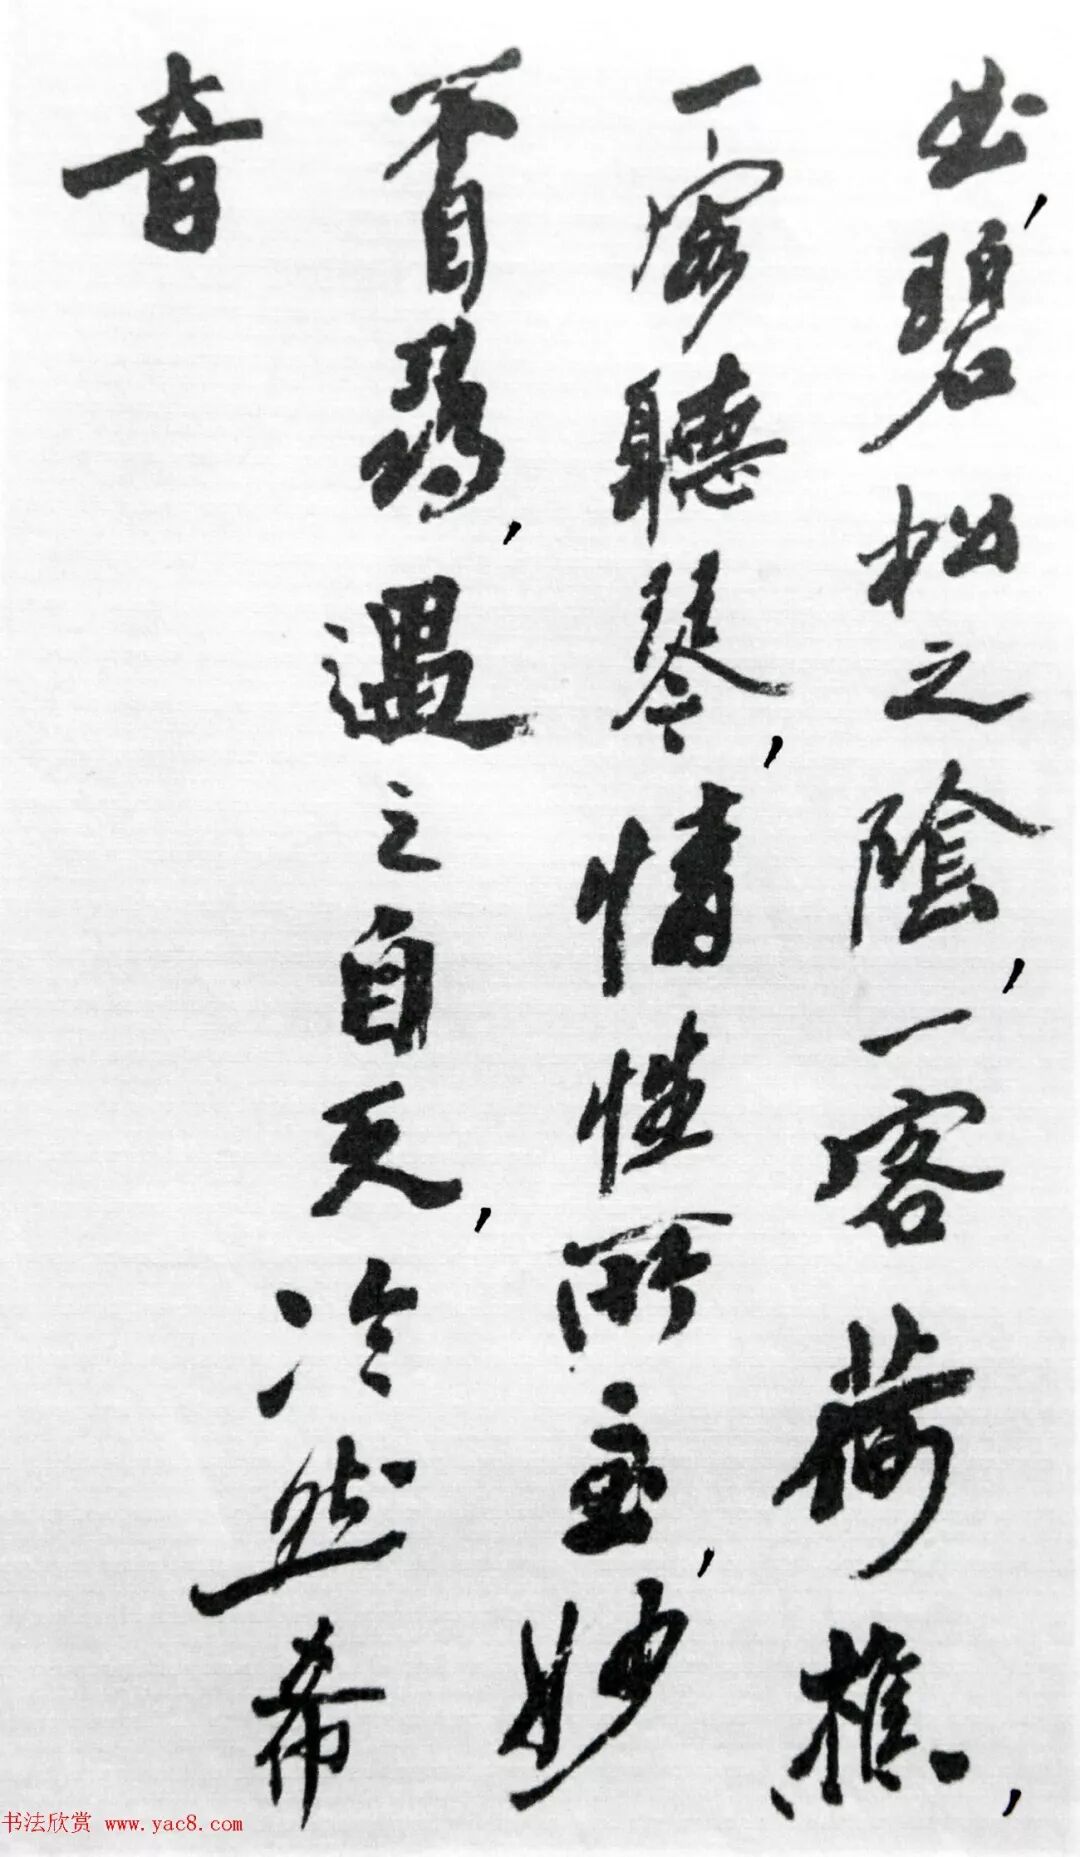 曲,碧松之陰,一客荷樵,
一客聽琴,情性所至,妙
不自尋,遇之自天,冷然希
音
书法欣赏 www.yac8.com